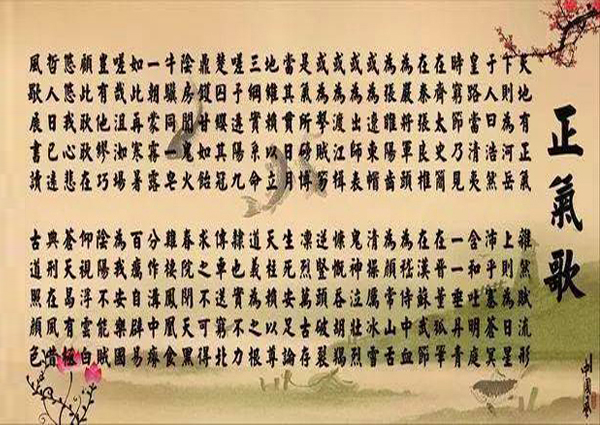 正氣歌
天地有正氣 雜然賦流形
下則為河岳 上則為日星
于人曰浩然 沛乎塞蒼冥
皇路當清夷 含和吐明庭
時窮節乃見 一一垂丹青
在齊太史簡 在晉董狐筆
在秦張良椎 在漢蘇武節
為嚴將軍頭 為嵇侍中血
為張睢陽齒 為顏常山舌
或為遼東帽 清操厲冰雪
或為出師表 鬼神泣壯烈
或為渡江楫 慷慨吞胡羯
或為擊賊笏 逆豎頭破裂
是氣所磅礴 凜烈萬古存
當其貫日月 生死安足論
地維賴以立 天柱賴以尊
三綱實系命 道義為之根
嗟予遘陽九 隸也實不力
楚囚纓其冠 傳車送窮北
鼎鑊甘如飴 求之不可得
陰房闃鬼火 春院閟天黑
牛驥同一皂 雞棲鳳凰食
一朝蒙霧露 分作溝中瘠
如此再寒暑 百癘自辟易
嗟哉沮洳場 為我安樂國
豈有他繆巧 陰陽不能賊
顧此耿耿在 仰視浮雲白
悠悠我心悲 蒼天曷有極
哲人日已遠 典刑在夙昔
風簷展書讀 古道照顏色